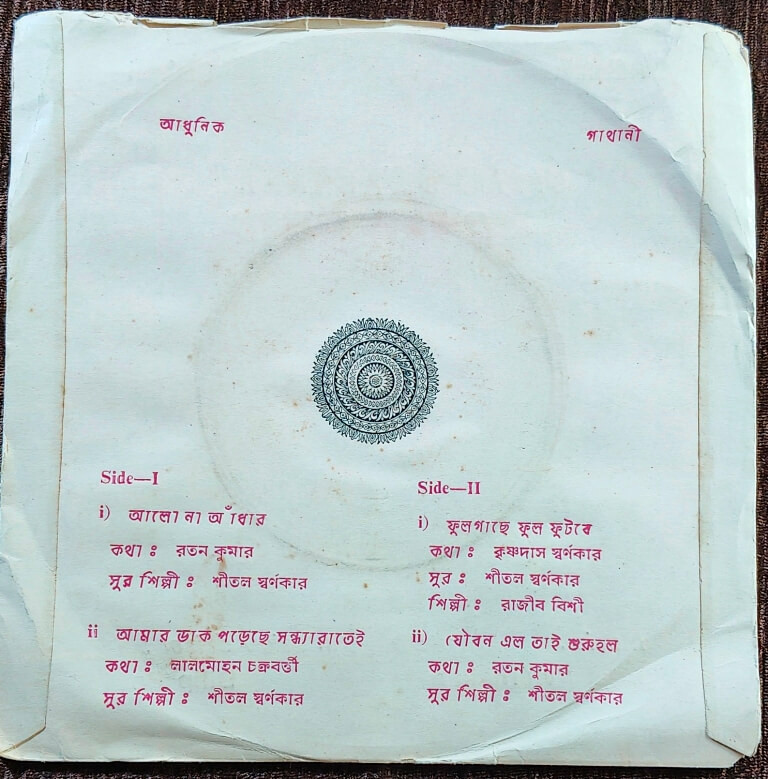 আধুনিক
গাথানী
Side—I
i) আলো না আঁধার
কথা ঃ রতন কুমার
সুর শিল্পী ঃ শীতল স্বর্ণকার
ii আমার ডাক পড়েছে সন্ধ্যারাতেই
কথা ঃ লালমোহন চক্রবর্ত্তী
সুর শিল্পী ঃ শীতল স্বর্ণকার
Side—II
i) ফুলগাছে ফুল ফুটবে
কথা ঃ কৃষ্ণদাস স্বর্ণকার
সুর ঃ শীতল স্বর্ণকার
শিল্পী ঃ রাজীব বিশী
ii) যৌবন এল তাই শুরুহল
কথা ঃ রতন কুমার
সুর শিল্পী ঃ শীতল স্বর্ণকার